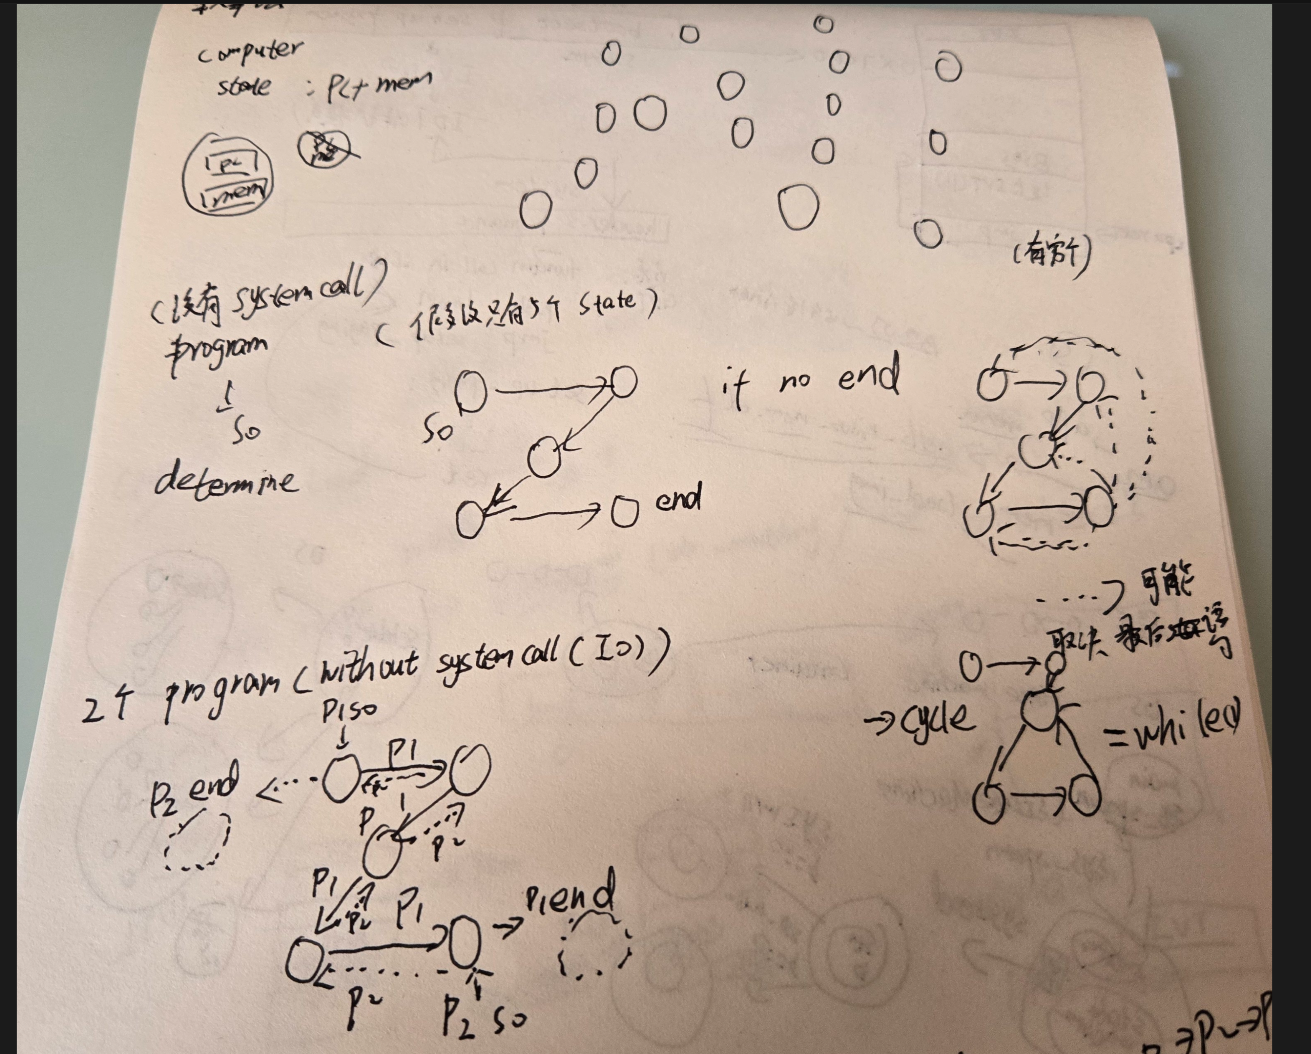 computer
state : PC+mem
PC
mem
(有穷个)
(没有 system call)
program
S0
determine
(假设只有5个 state)
S0
end
if no end
....> 可能
取决 最后 语句
→ cycle
= while()
2个 program (without system call (IO))
P1 S0
P2 end
P1
P2
P1
P2
P1
P2
P1
P2
P1 end
P2 S0
→P2→P